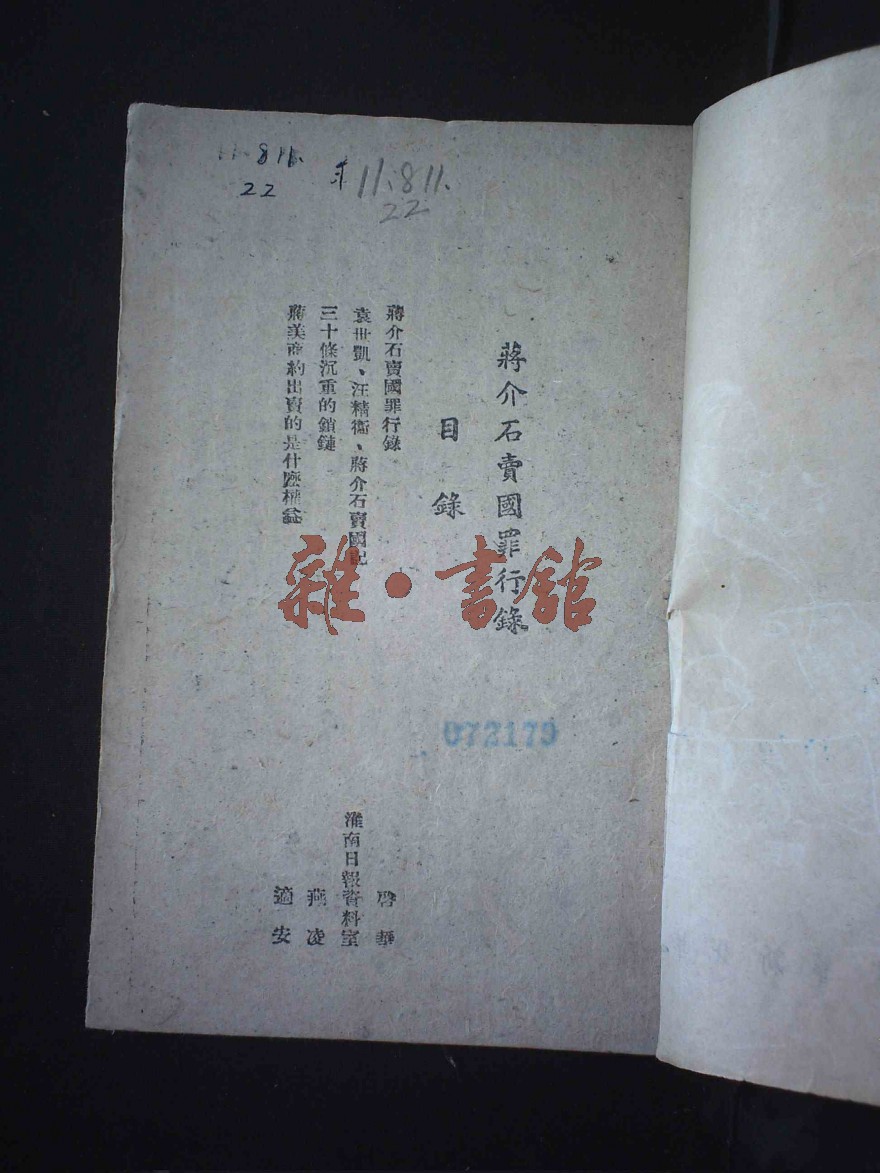 11.811.
22
11.811.
22
蔣介石賣國罪行錄
目錄
蔣介石賣國罪行錄
啓華
袁世凱、汪精衞、蔣介石賣國記
淮南日報資料室
三十條沉重的鎖鏈
燕凌
蔣美商約出賣的是什麽權益
適安
雜·書館
072179